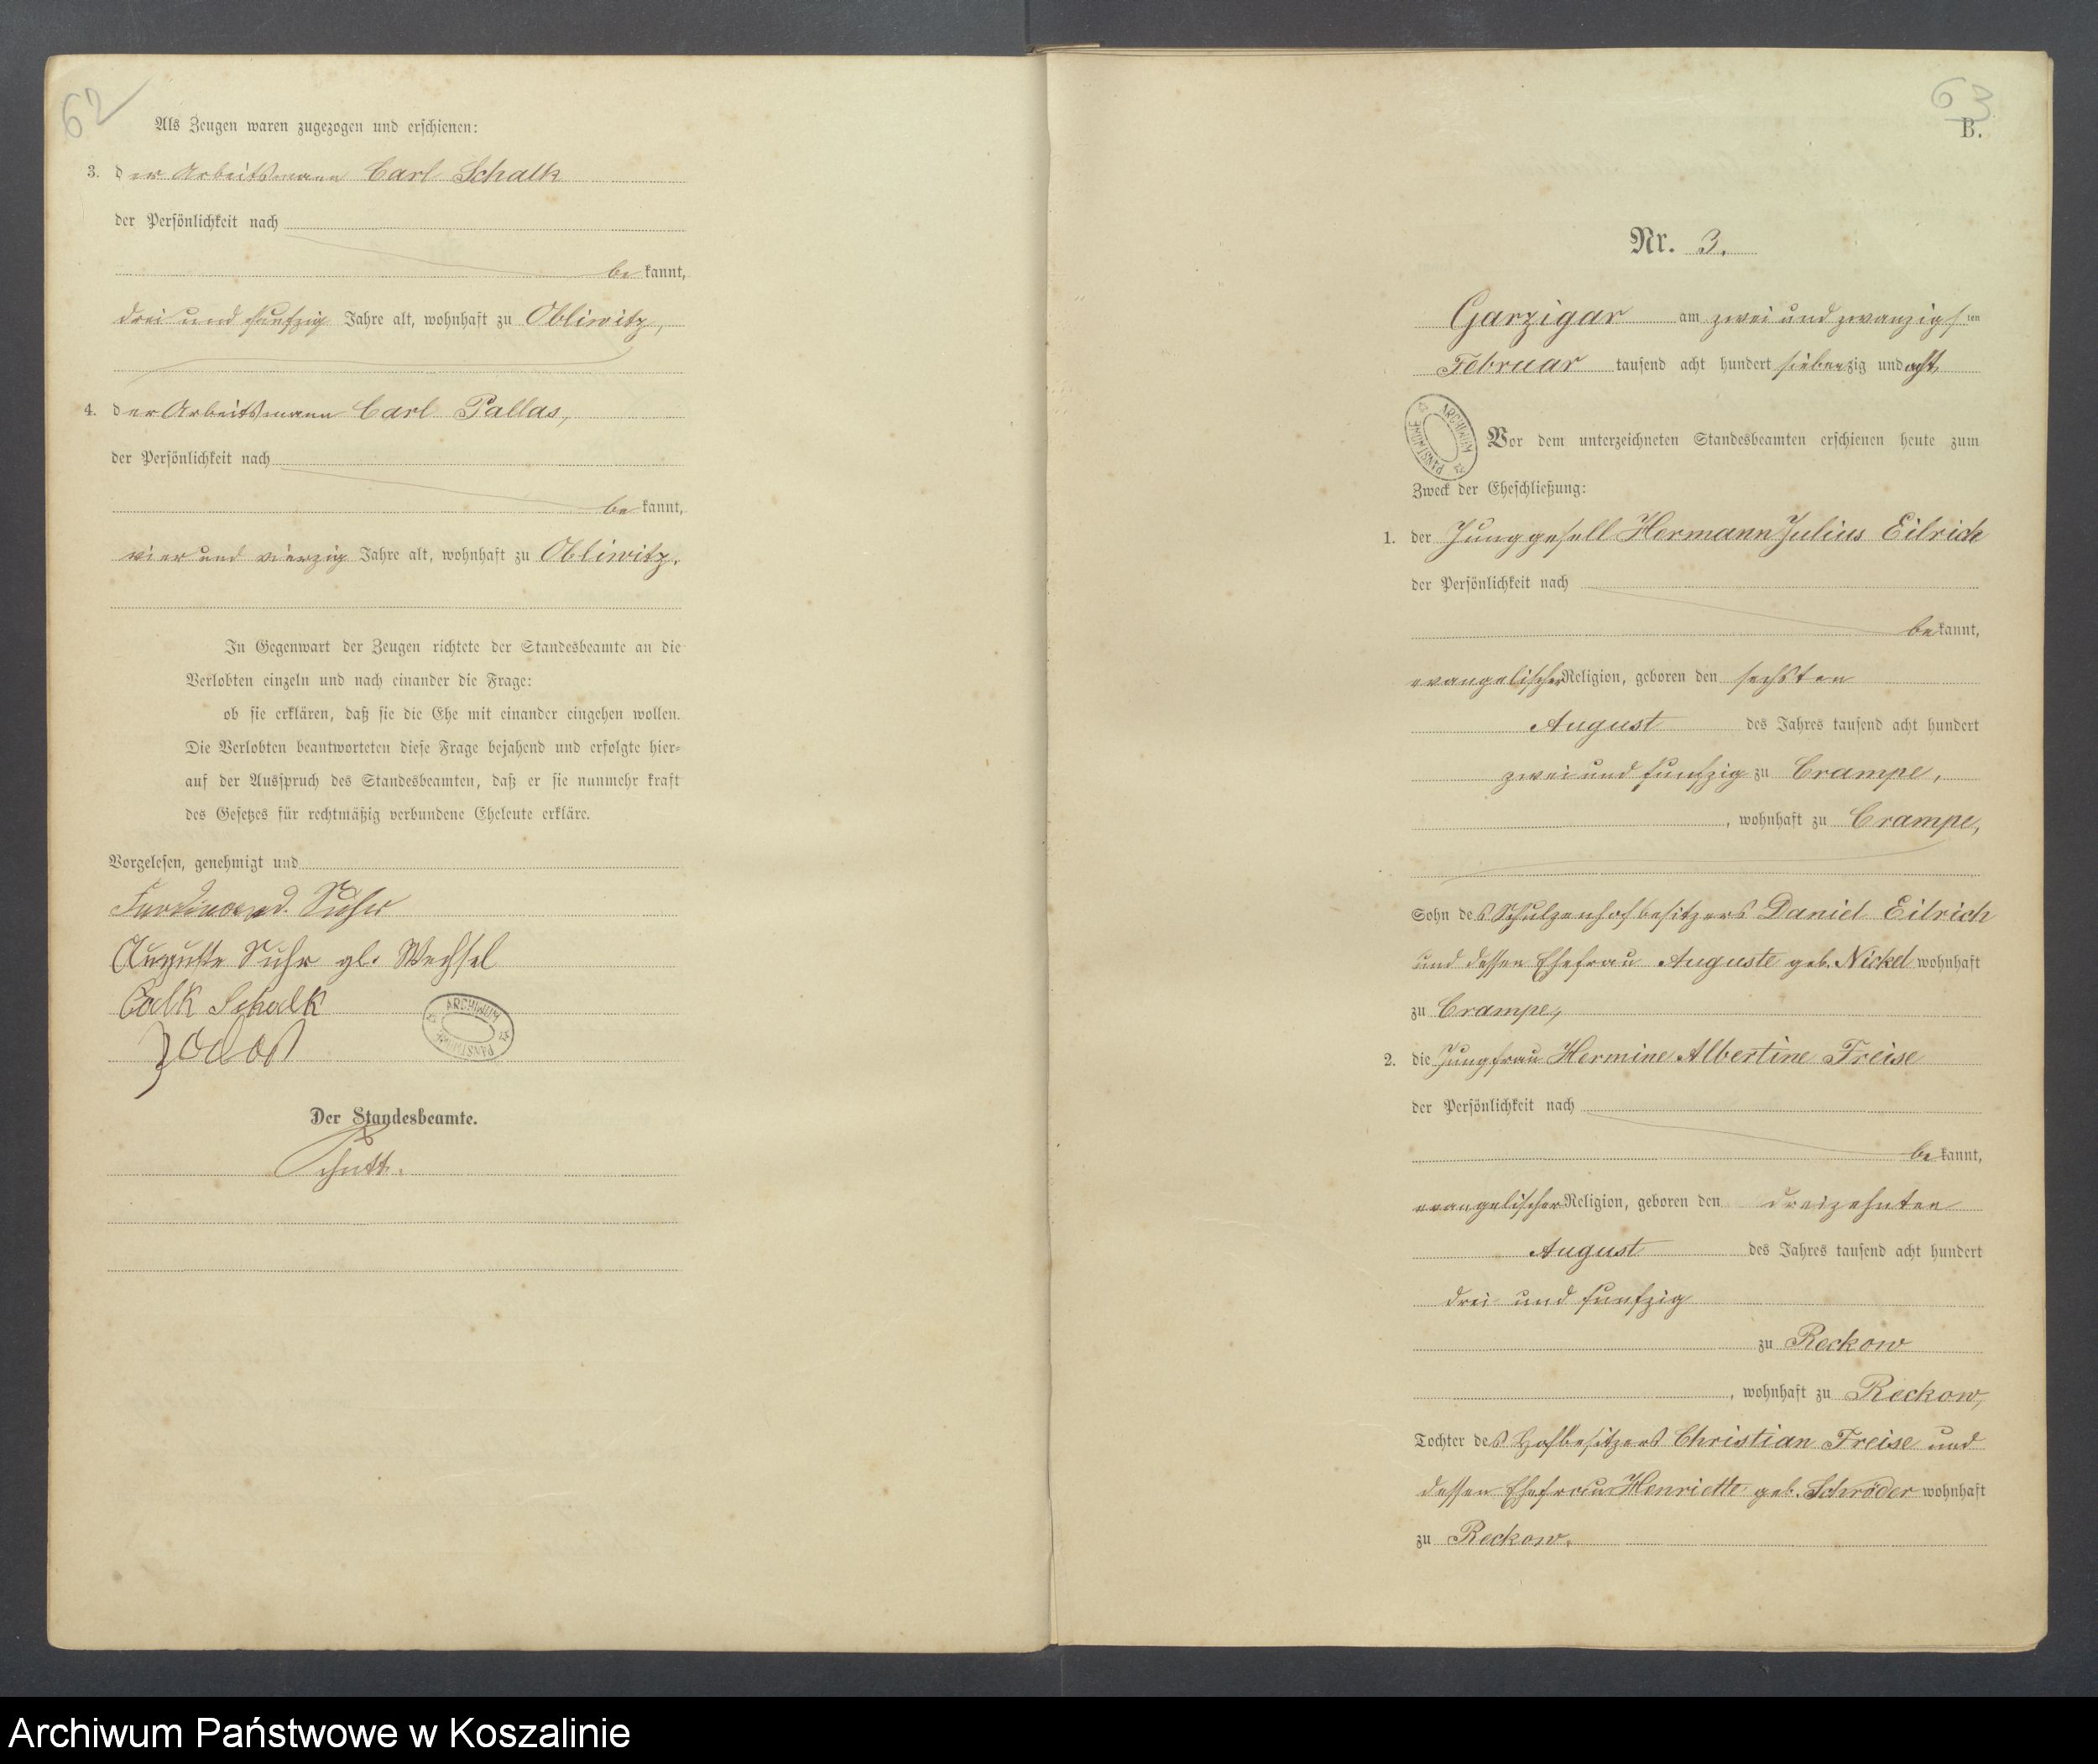 62
Als Zeugen waren zugezogen und erschienen:
3. der Arbeitsmann Carl Schalk
der Persönlichkeit nach
bekannt,
drei und funfzig Jahre alt, wohnhaft zu Obliwitz,
4. der Arbeitsmann Carl Pallas,
der Persönlichkeit nach
bekannt,
vier und vierzig Jahre alt, wohnhaft zu Obliwitz.
In Gegenwart der Zeugen richtete der Standesbeamte an die
Verlobten einzeln und nach einander die Frage:
ob sie erklären, daß sie die Ehe mit einander eingehen wollen.
Die Verlobten beantworteten diese Frage bejahend und erfolgte hier-
auf der Ausspruch des Standesbeamten, daß er sie nunmehr kraft
des Gesetzes für rechtmäßig verbundene Eheleute erkläre.
Vorgelesen, genehmigt und
Ferdinand Suhr
Auguste Suhr Wechsel
Schalk
ARCHIWUM PAŃSTWOWE
Der Standesbeamte.
63
B.
Nr. 3.
Garzigar am zwei und zwanzigsten
Februar tausend acht hundert siebenzig und acht
ARCHIWUM PAŃSTWOWE
Vor dem unterzeichneten Standesbeamten erschienen heute zum
Zweck der Eheschließung:
1. der Junggesell Hermann Julius Eilrich
der Persönlichkeit nach
bekannt,
evangelischer Religion, geboren den sechsten
August des Jahres tausend acht hundert
zwei und funfzig zu Crampe,
, wohnhaft zu Crampe,
Sohn des Schulzenhofbesitzers Daniel Eilrich
und dessen Ehefrau Auguste geb. Nickel wohnhaft
zu Crampe,
2. die Jungfrau Hermine Albertine Freise
der Persönlichkeit nach
bekannt,
evangelischer Religion, geboren den dreizehnten
August des Jahres tausend acht hundert
drei und funfzig
zu Reckow
, wohnhaft zu Reckow,
Tochter des Hofbesitzers Christian Freise und
dessen Ehefrau Henriette geb. Schröder wohnhaft
zu Reckow.
Archiwum Państwowe w Koszalinie